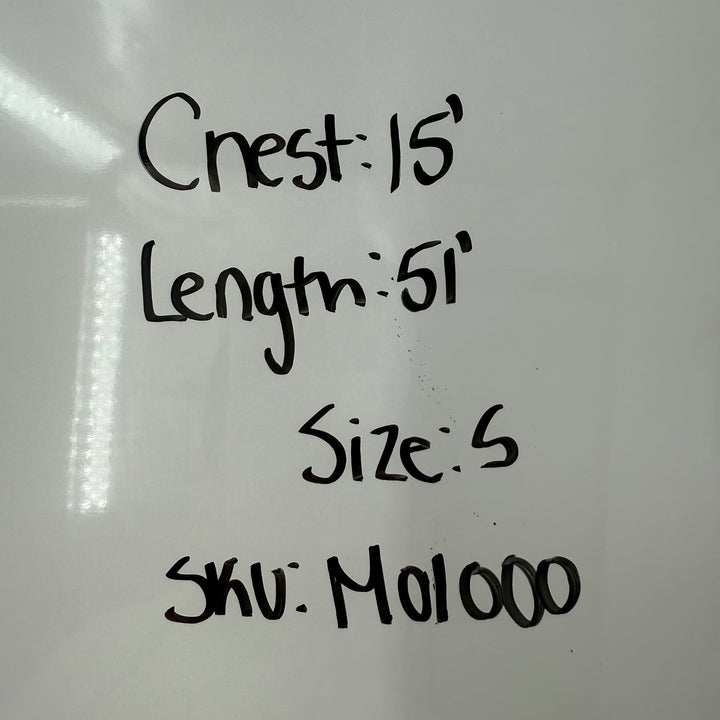 Chest: 15'
Length: 51'
Size: S
SKU: M01000